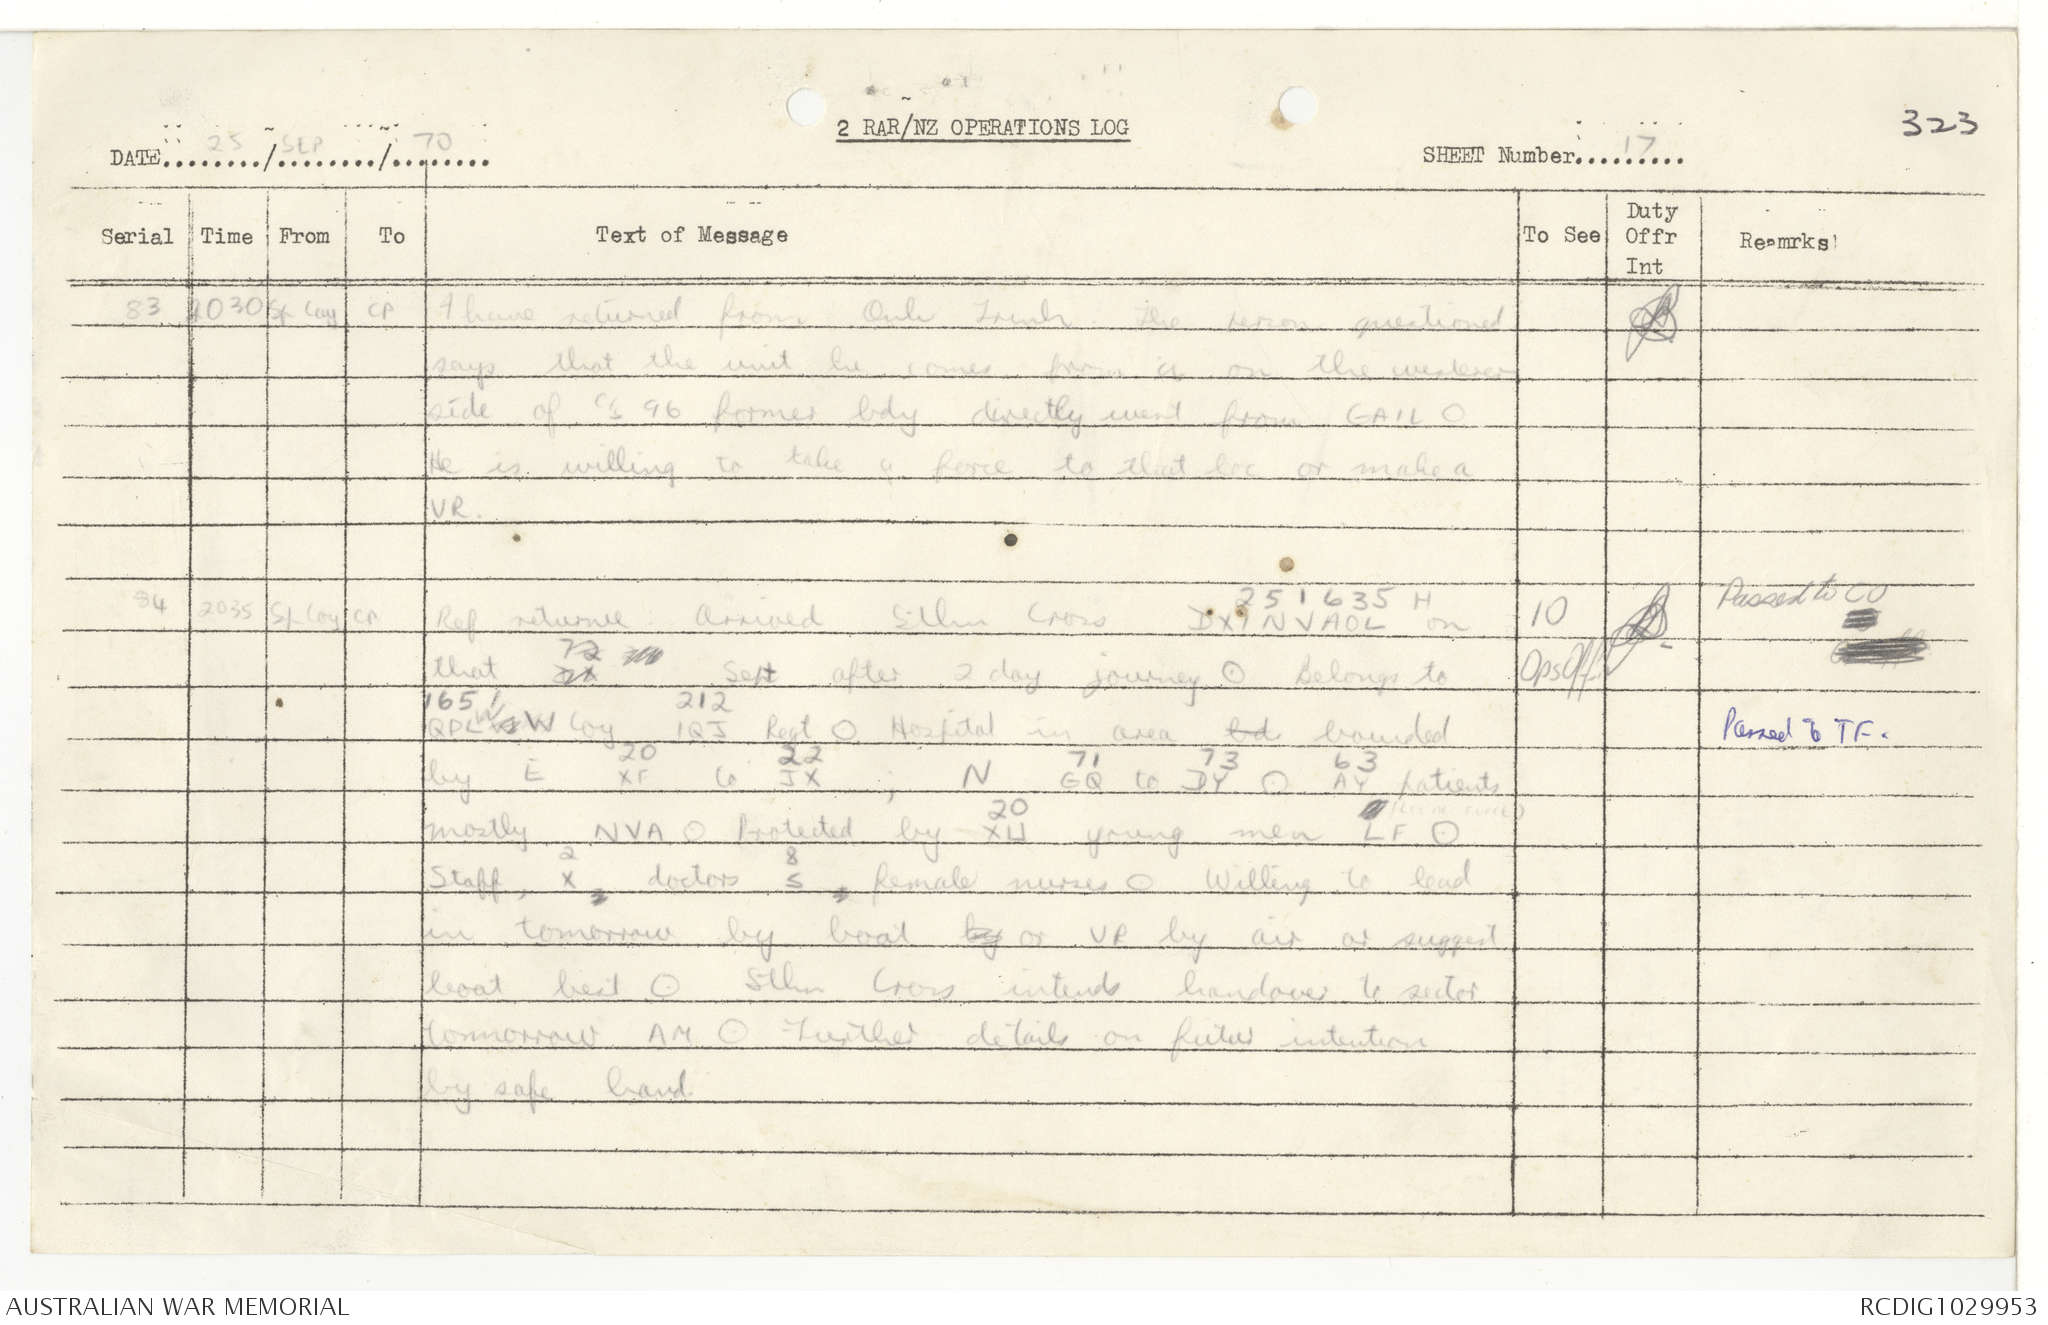 323
2 RAR/NZ OPERATIONS LOG
DATE 25 / SEP / 70
SHEET Number 17
Serial Time From To Text of Message To See Duty Offr Int Reamrks
83 2030 Sp Coy CP I have returned from Ong Trinh. The person questioned
says that the unit he comes from is on the western
side of C/S 96 former bdy directly west from GAIL O
He is willing to take a force to that loc or make a
VR.
251635 H
84 2035 Sp Coy CP Ref returnee Arrived Sthn Cross DXINVAOL on IO Passed to CO
72
that Sept after 2 day journey O Belongs to Ops Off
165 212
QPL W Coy IQJ Regt O Hospital in area bd bounded Passed to TF.
20 22 71 73 63
by E XF to JX ; N GQ to DY O AY patients
20
mostly NVA O Protected by XU young men LF O
2 8
Staff, X doctors S female nurses O Willing to lead
in tomorrow by boat by or VR by air or suggest
boat best O Sthn Cross intends handover to sector
tomorrow AM O Further details on futur intention
by safe hand
AUSTRALIAN WAR MEMORIAL
RCDIG1029953